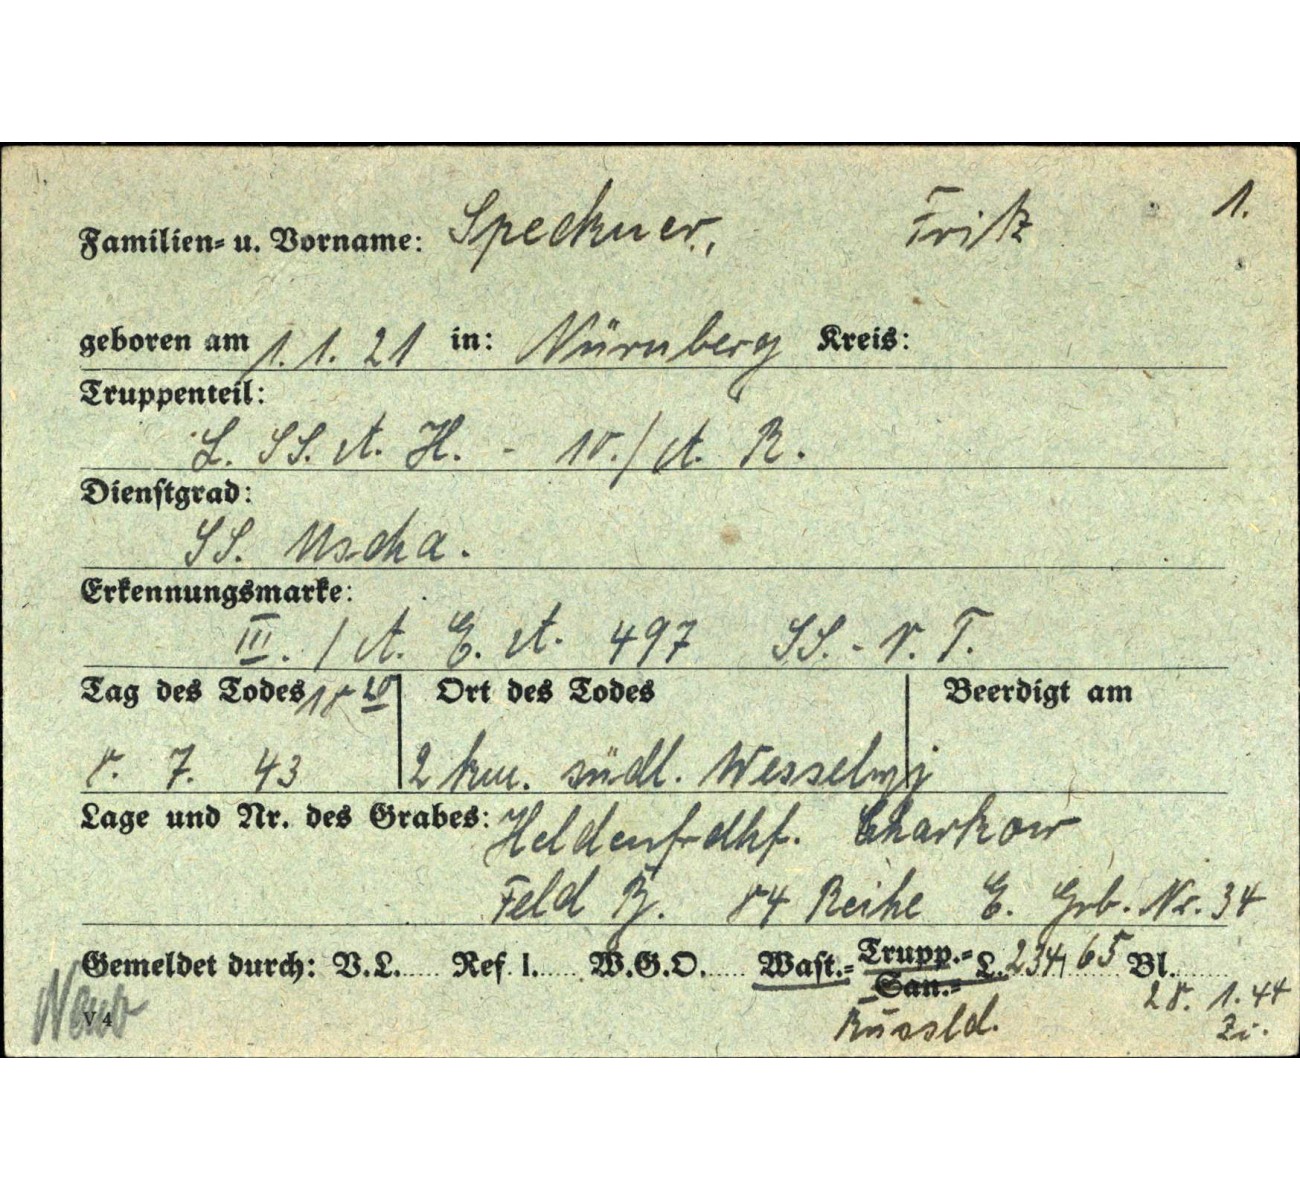 1.
Familien- u. Vorname: Speckner, Fritz
geboren am 1.1.21 in: Nürnberg Kreis:
Truppenteil:
L. SS. A. H. - 10./A. R.
Dienstgrad:
SS. Uscha.
Erkennungsmarke:
III./A. E. A. 497 SS.-V. T.
Tag des Todes 18 20 Ort des Todes Beerdigt am
8. 7. 43 2 km. südl. Wesselyj
Lage und Nr. des Grabes: Heldenfrdhf. Charkow
Feld B. 84 Reihe E. Grb. Nr. 34
Gemeldet durch: V.L. Ref. I. W.G.O. Wast.- Trupp.- San.- L. 234/65 Bl.
28. 1. 44
V 4 Russld. Zi.